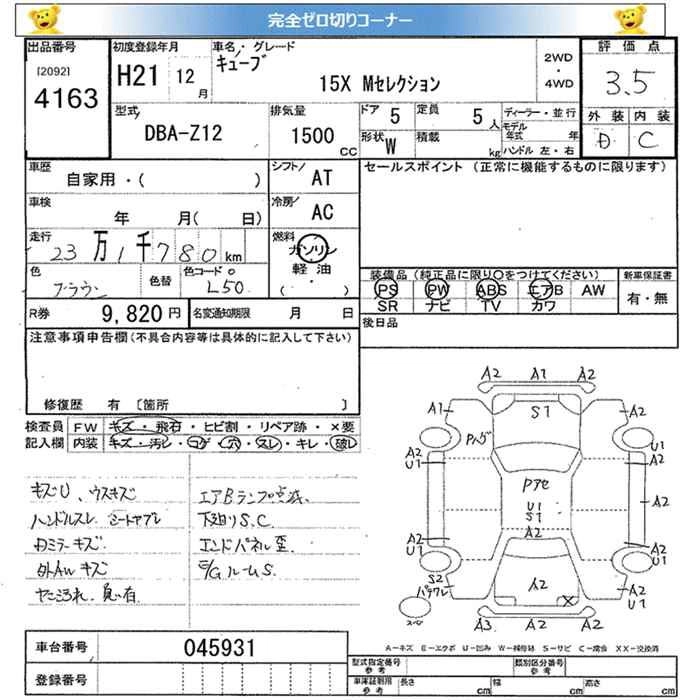 完全ゼロ切りコーナー
出品番号
[2092]
4163
初度登録年月
H21 12 月
車名・グレード
キューブ
15X Mセレクション
2WD
・
4WD
評価点
3.5
外装 内装
D C
型式
DBA-Z12
排気量
1500 CC
ドア 5
定員 5 人
形状 W
積載 kg
ディーラー・並行
モデル年式 年
ハンドル 左・右
車歴
自家用・( )
シフト/ AT
車検
年 月( 日)
冷房/ AC
走行
23万1千780km
燃料
ガソリン
軽油
( ・ )
色
ブラウン
色替
色コード
L50
R券 9,820 円
名変通知期限 月 日
セールスポイント (正常に機能するものに限ります)
装備品 (純正品に限り〇をつけてください)
PS PW ABS エアB AW
SR ナビ TV カワ
新車保証書
有・無
後日品
注意事項申告欄(不具合内容等は具体的に記入して下さい)
修復歴 有 [箇所 ]
検査員 FW キズ・飛石・ヒビ割・リペア跡・×要
記入欄 内装 キズ・汚レ・コゲ・穴・スレ・キレ・破レ
キズU、ウスキズ
ハンドルスレ シートヤブレ
Dミラーキズ
外AWキズ
ヤニ汚れ、臭い有
エアBランプ点滅.
下廻りS.C.
エンドパネル歪
E/GルームS.
A2 A1 A2
A1 S1 A2
U1
A2 U1
A2 U1
A2
U1
S1
A2
A2 U1
A2 U1
S2
A2
×
A3 A2 A2
A-キズ E-エクボ U-凹み W-補修跡 S-サビ C-腐食 XX-交換済
車台番号 045931
登録番号
型式指定番号
参考
類別区分番号
参考
車庫証明用
参考
長さ cm 幅 cm 高さ cm